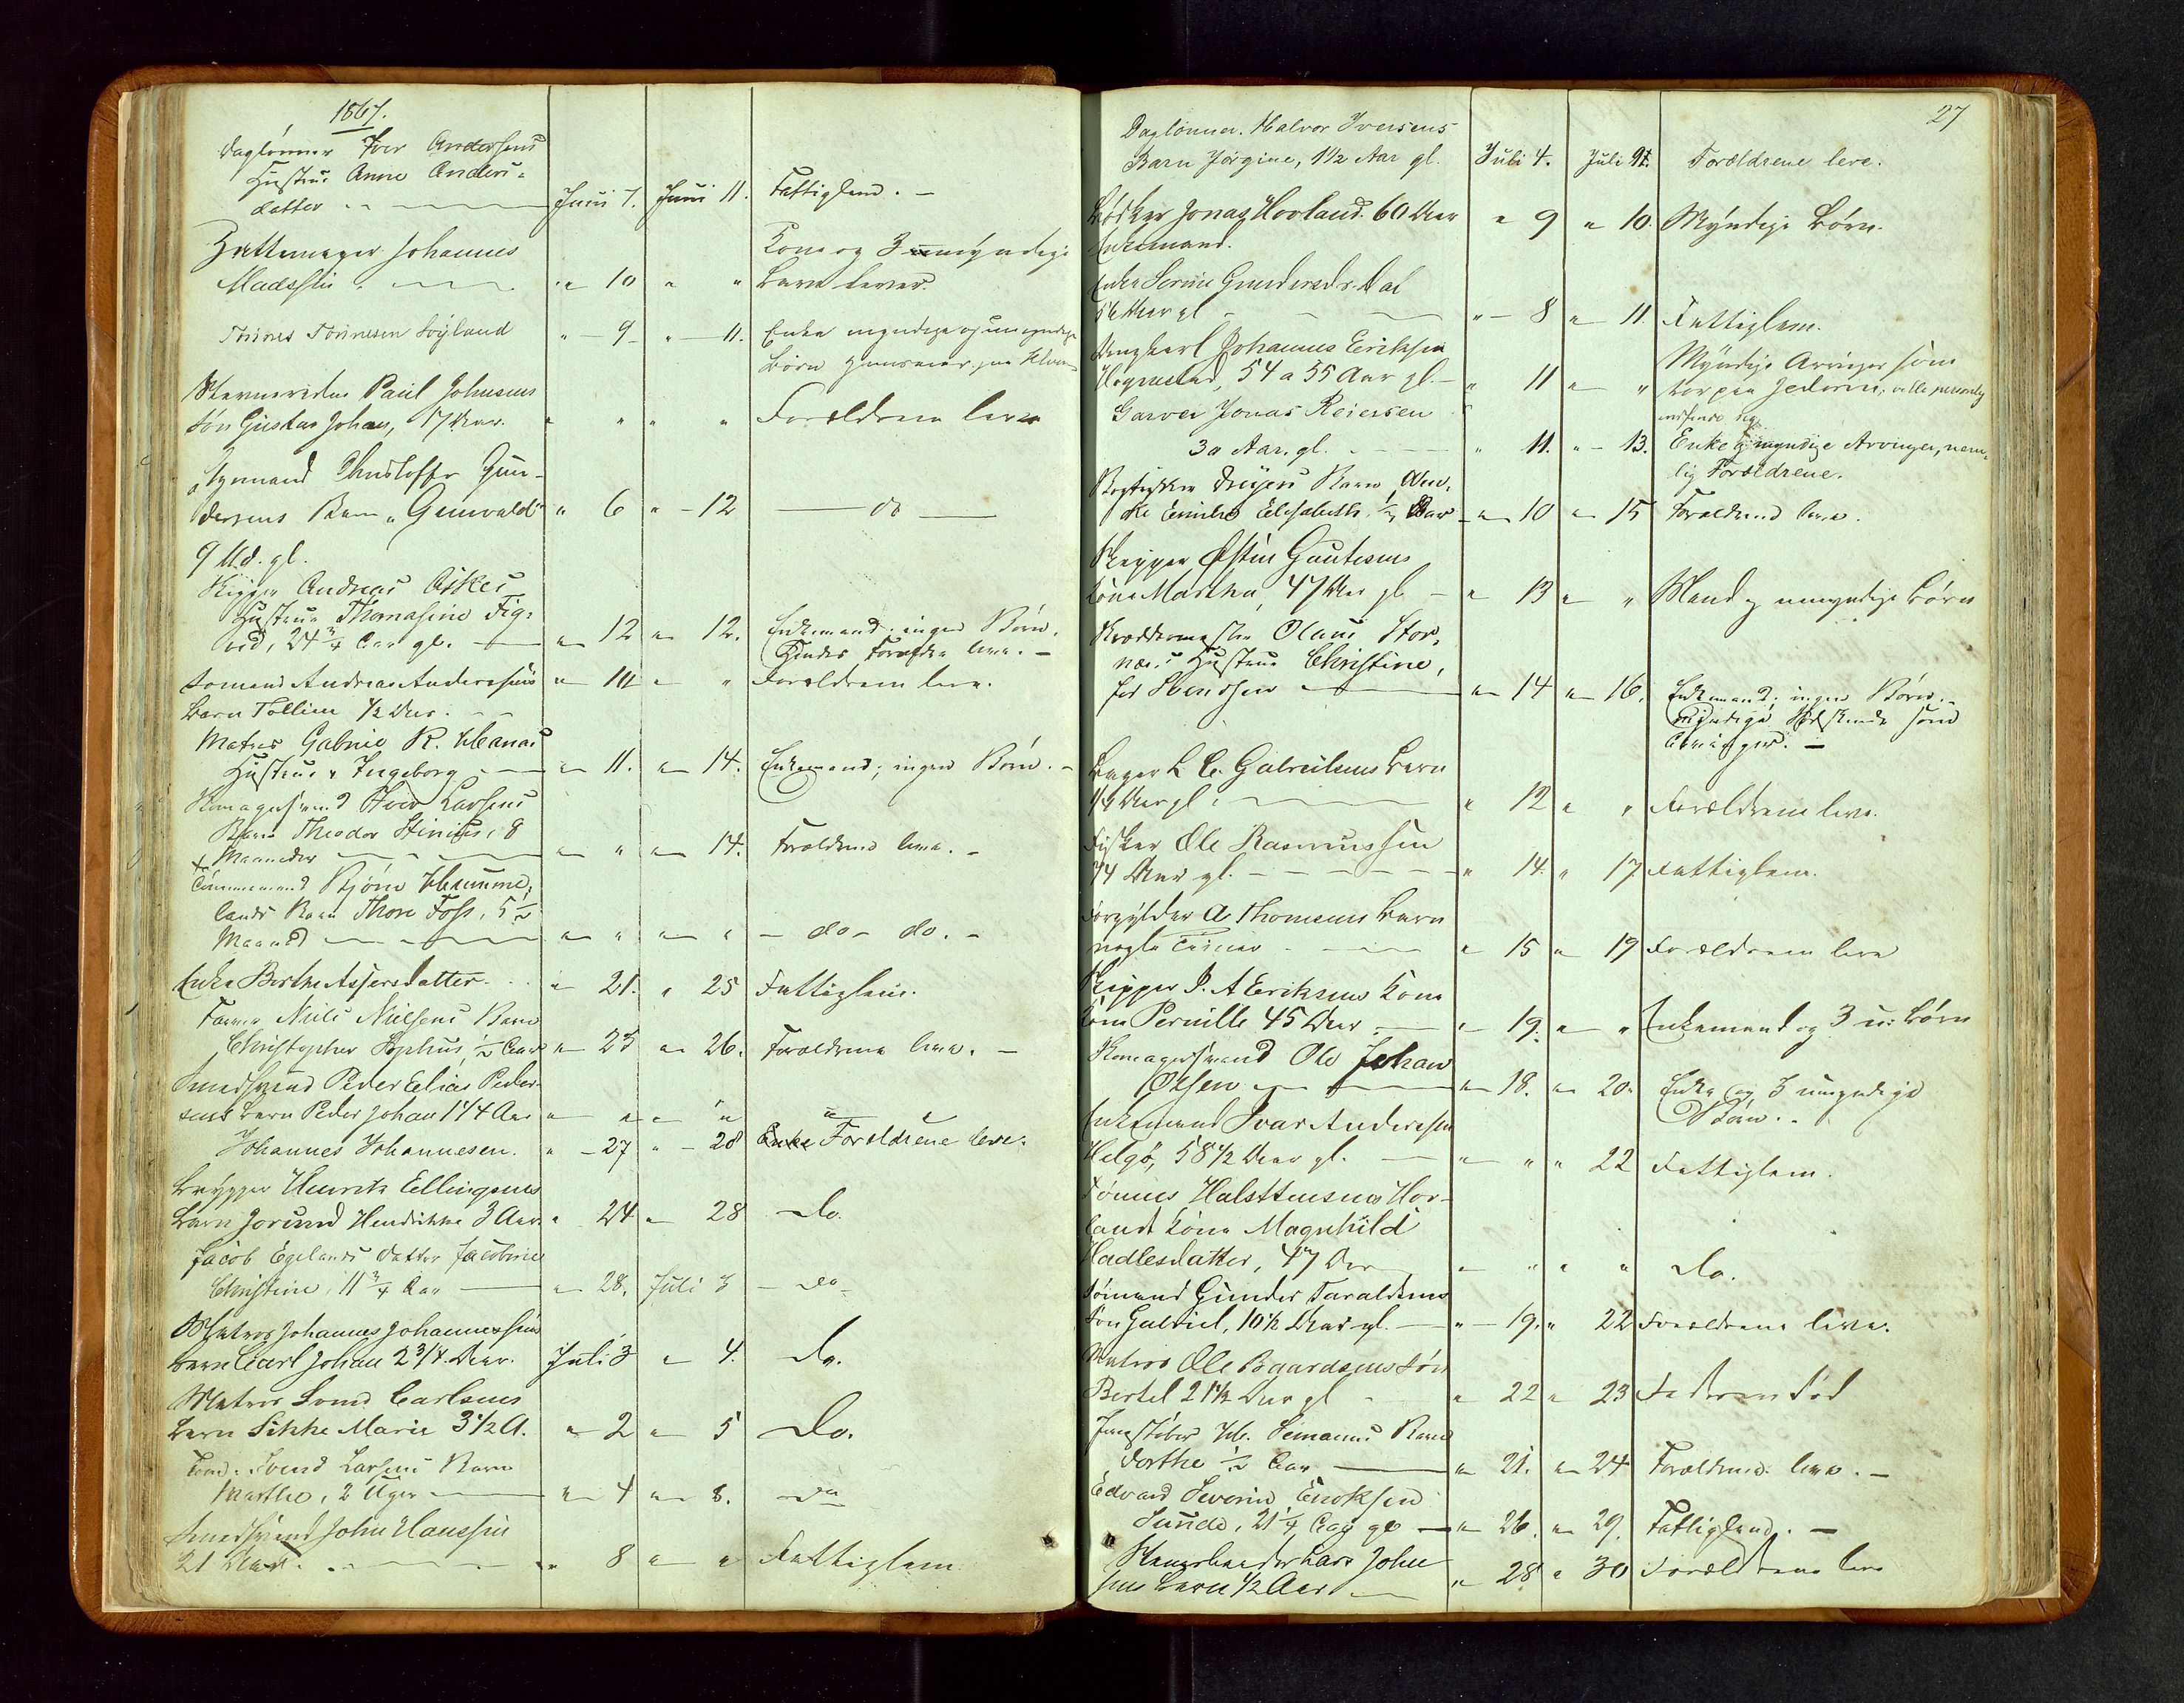 1867.
Daglønner Iver Andersens
Hustrue Anne Anders-
datter Juni 7. Juni 11. Fattiglem.
Hattemager Johannes Kone og 3 umyndige
Madssen " 10 " " Børn lever.
Tønnes Tønnesen Søyland " 9 " 11. Enke myndige og umyndige
Børn
Paul Johnsens
Søn Gustav Johan, 17 Aar. " " " " Forældrene leve
Styrmand Christoffer Gun-
dersens Barn "Gunvald" " 6 " 12 do
9 Md. gl.
Skipper Andreas Askes
Hustrue Thomasine Tig-
 24 3/4 Aar gl. " 12 " 12. Enkemand, ingen Børn.
Hendes Forældre leve.
Sømand Andreas Andersens " 10 " " Forældrene leve.
Barn Tolline 1/2 Aar.
Matros Gabriel R. Haanas
Hustrue Ingeborg " 11. " 14. Enkemand; ingen Børn.
Skomagersvend Iver Larsens
Barn Theodor Stinius, 8
Maaneder " " " 14. Forældrene leve.
Tømmermand Bjørn Humme-
lands Barn Thore Foss, 5 1/2
Maaned " " " " do do.
Enke Berthe Assersdatter. " 21. " 25 Fattiglem.
Niels Nielsens Barn
Christopher Sophus, 1/2 Aar " 23 " 26. Forældrene leve.
Smedsvend Peder Elias Peder-
sens Barn Peder Johan 1 1/4 Aar " " " " " "
Johannes Johannesen. " 27 " 28 Forældrene leve.
Brygger Henrik Ellingsens
Barn Jorund Hendrikke 3 Aar. " 24 " 28 do.
Jacob Egelands Datter Jacobine
Christine, 11 3/4 Aar " 28. Juli 3 do
Matros Johannes Johannessens
Barn Carl Johan 2 3/4 Aar. Juli 3 " 4. do.
Matros Svend Carlsens
Barn Sikke Marie 3 1/2 A. " 2 " 5 do.
Svend Larsens Barn
Marthe, 2 Uger " 4 " 8. do
Smedsvend John Hanssen
21 Aar. " 8 " " Fattiglem
27
Daglønner. Halvor Iversens
Barn Jørgine, 1 1/2 Aar gl. Juli 4. Juli 9. Forældrene leve.
Bødker Jonas Hovland. 60 Aar " 9 " 10. Myndige Børn.
Enkemand.
Enke Serine Gundersdr. Dal
 Aar gl " 8 " 11. Fattiglem.
Ungkarl Johannes Eriksen Myndige Arvinger som
Hognestad, 54 a 55 Aar gl. " 11 " " bor paa Jederen;
Garver Jonas Reiersen
30 Aar. gl. " 11. " 13. Enke og myndige Arvinger, nem-
lig Forældrene.
Bogtrykker Dreyers Barn, Wen-
ke Emilie Elisabeth. 1/2 Aar " 10 " 15 Forældrene leve.
Skipper Østen Gautesens
Kone Martha, 47 Aar gl " 13 " " Mand og umyndige Børn
Skræddermester Olaus Stor-
næs's Hustrue Christine,
fød Svendsen " 14 " 16. Enkemand; ingen Børn.
Myndige Sødskende som
Arvinger.
Bager L C. Gabrielsens Barn
1/4 Aar gl " 12 " " Forældrene leve.
Fisker Ole Rasmussen
74 Aar gl. " 14. " 17 Fattiglem.
Forgylder A. Thomsens Barn
nogle Timer " 15 " 19 Forældrene leve
Skipper P. A Eriksens Kone
Kone Pernille 45 Aar. " 19. " " Enkemand og 3 u. Børn
Skomagersvend Ole Johan
Olsen " 18. " 20. Enke og 3 umyndige
Børn.
Enkemand Ivar Andersen
Helgø, 58 1/2 Aar gl. " " " 22 Fattiglem.
Tønnes Halstensens Hov-
lands Kone Magnhild
Hadlesdatter, 47 Aar " " " " do.
Sømand Gunder Taraldsens
Søn Gabriel, 10 1/2 Aar gl. " 19. " 22 Forældrene leve.
Matros Ole Baardsens Søn
Bertel 21 1/2 Aar gl " 22 " 23 Faderen død
Jernstøber H. Seimanns Barn
Dorthe 1/2 Aar " 21. " 24 Forældrene leve.
Edvard Severin Enoksen
Sunde, 21 1/4 Aar gl " 26. " 29. Fattiglem.
Lars John
sens Barn 1/2 Aar " 28 " 30 Forældrene leve